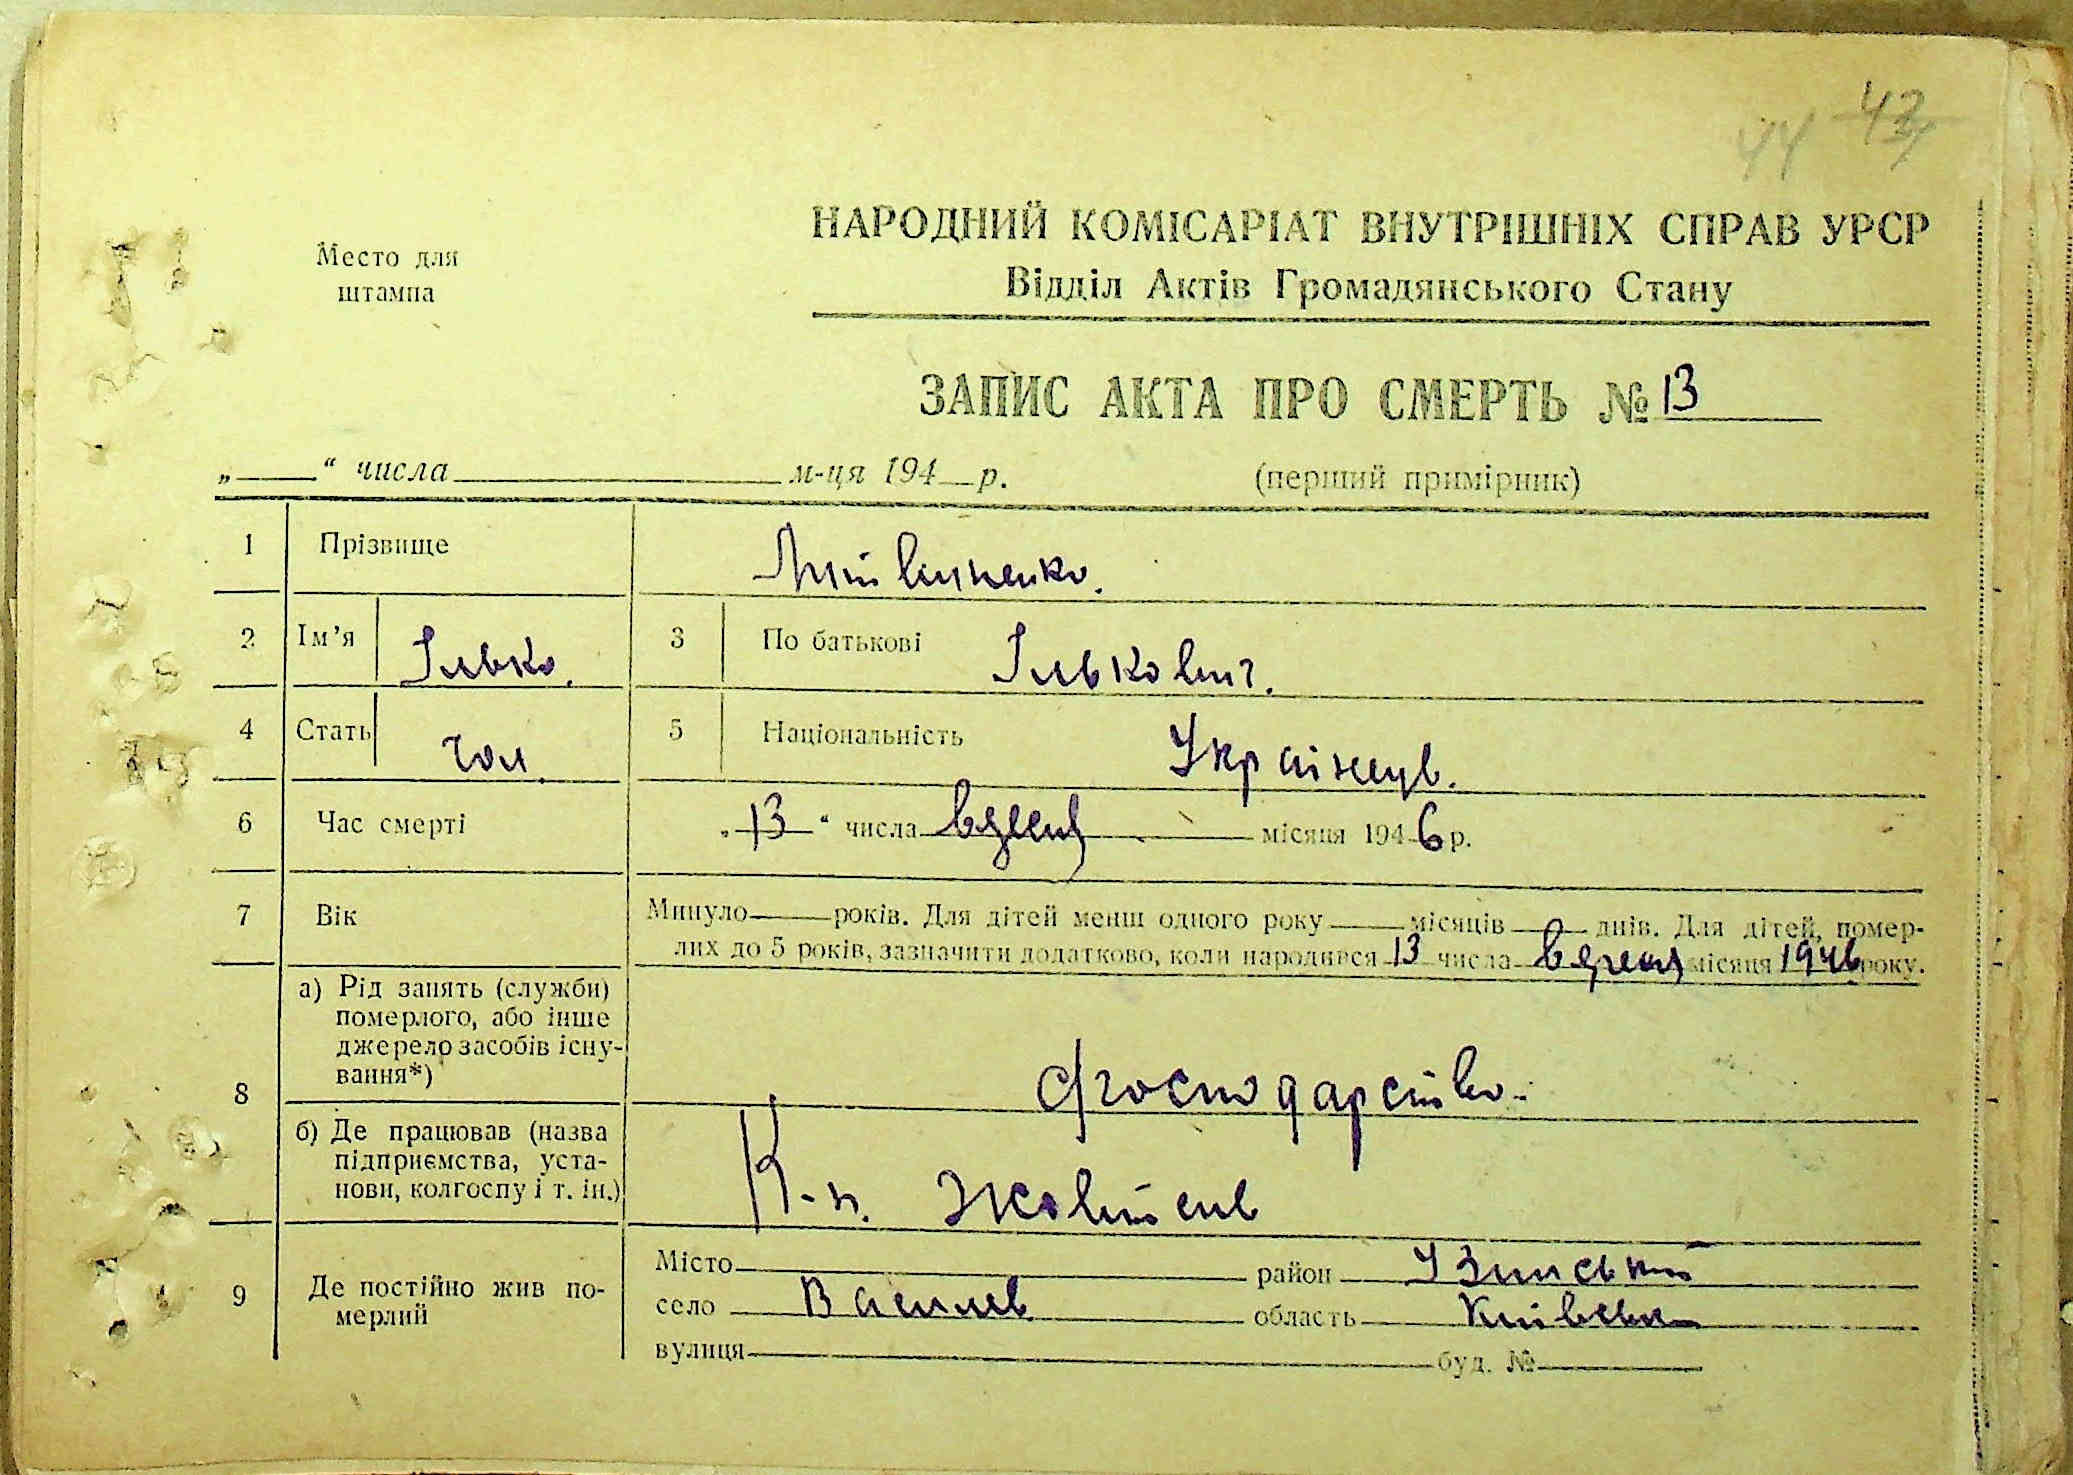 44 43
Место для
штампа
НАРОДНИЙ КОМІСАРІАТ ВНУТРІШНІХ СПРАВ УРСР
Відділ Актів Громадянського Стану
ЗАПИС АКТА ПРО СМЕРТЬ № 13
„ “ числа м-ця 194 р. (перший примірник)
1 Прізвище Литвиненко.
2 Ім’я Ілько. 3 По батьковіІлькович.
4 Стать чол. 5 Національність Українець.
6 Час смерті „ 13 “ числа місяця 194 6 р.
7 Вік Минуло років. Для дітей менш одного року місяців днів. Для дітей, помер-
лих до 5 років, зазначити додатково, коли народився 13 числа місяця 1946 року.
8 а) Рід занять (служби)
померлого, або інше
джерело засобів існу-
вання*)
господарство.
б) Де працював (назва
підприємства, уста-
нови, колгоспу і т. ін.)
К-п. Жовтень
9 Де постійно жив по-
мерлий
Місто район Узинський
село Василев область Київська
вулиця буд. №